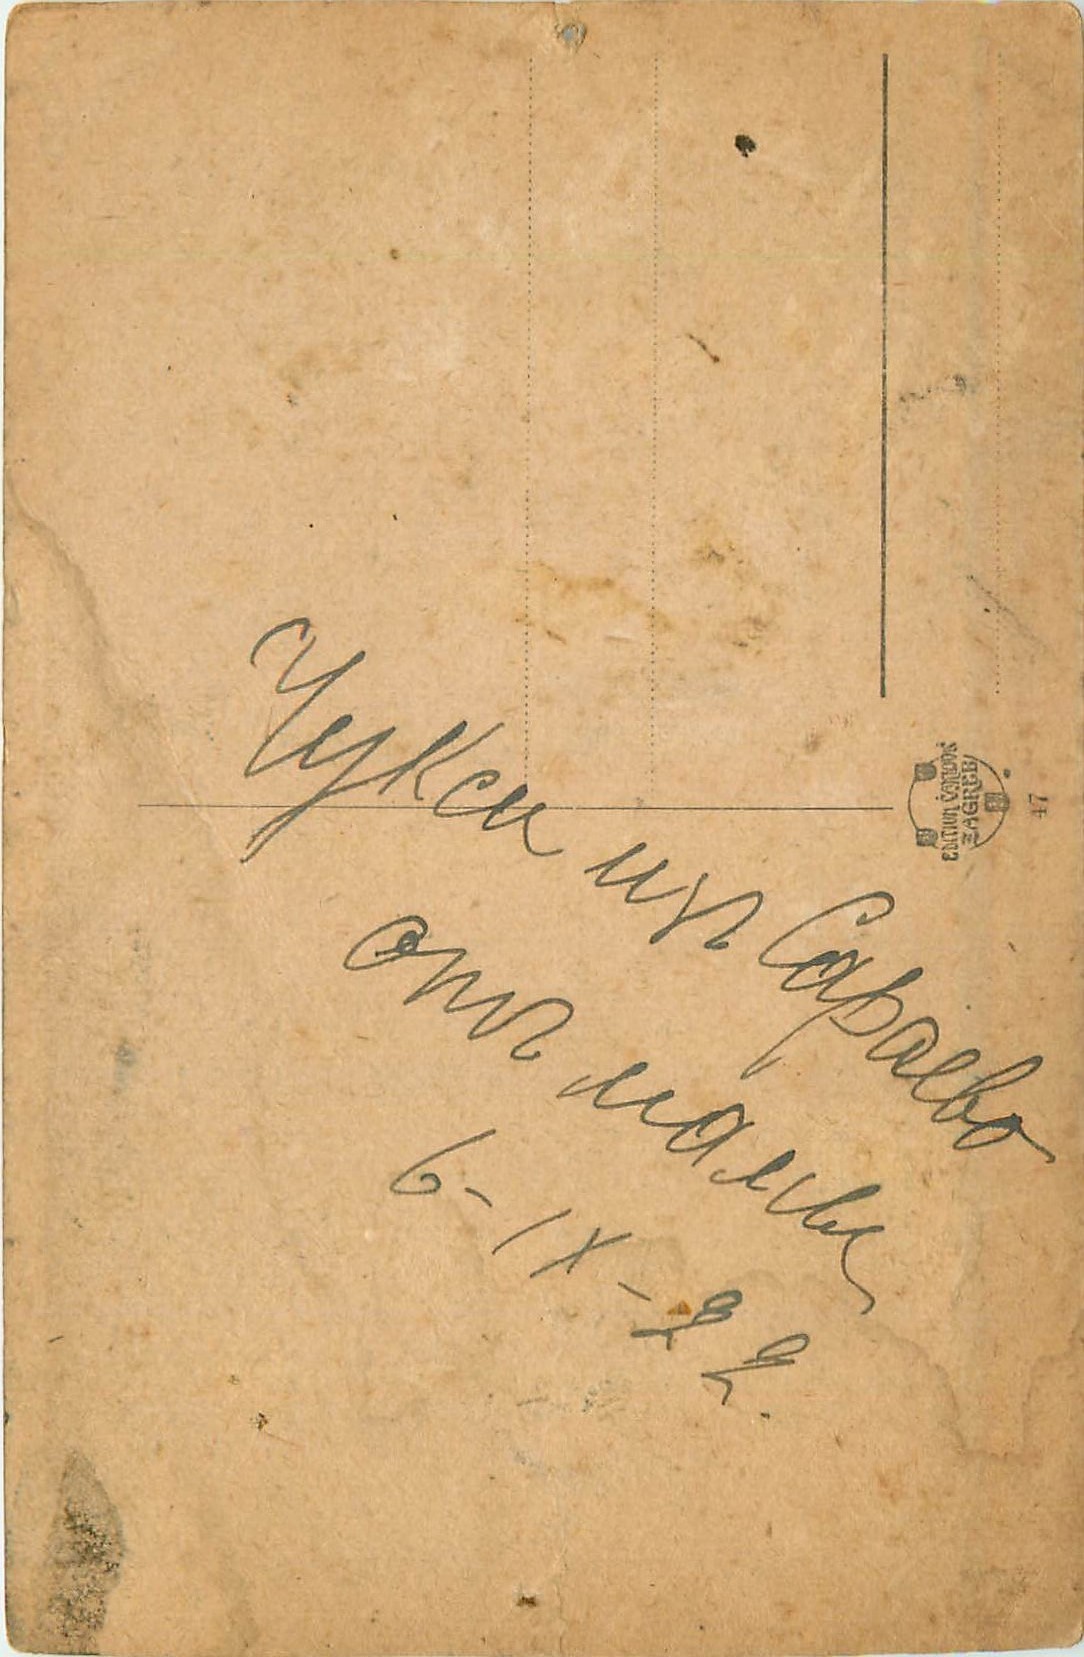 изъ Сараево
отъ мамы
6-IX-22.
EDITION ČAKLOVIĆ
ZAGREB
47